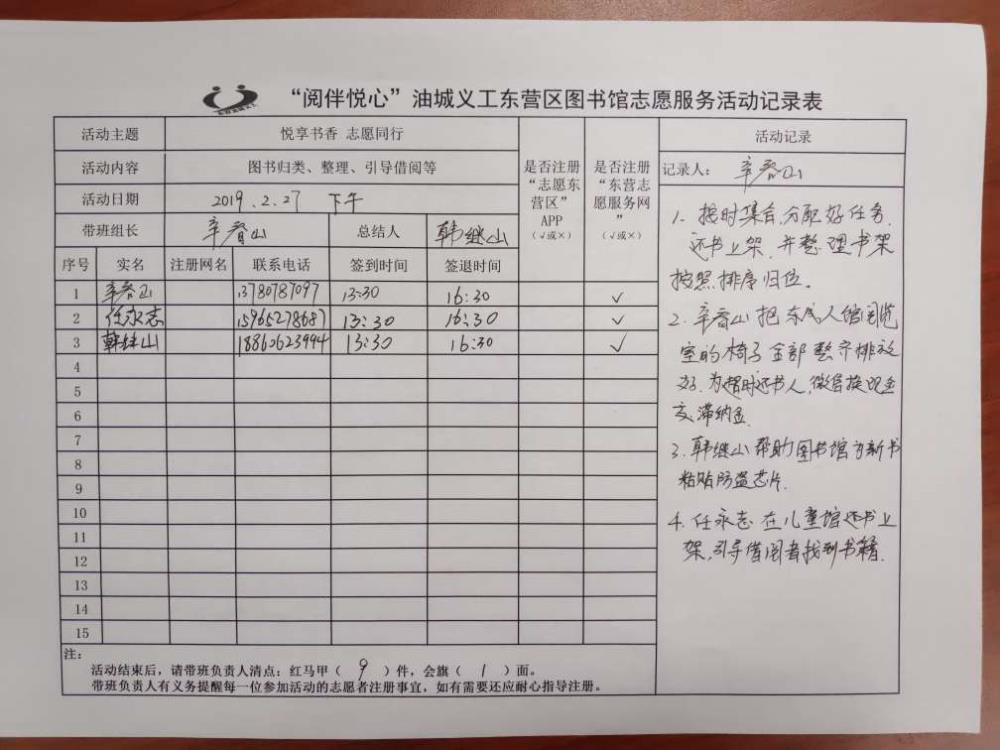 “阅伴悦心”油城义工东营区图书馆志愿服务活动记录表
活动主题 悦享书香 志愿同行
活动内容 图书归类、整理、引导借阅等
活动日期 2019.2.27 下午
带班组长 辛春山 总结人 韩继山
是否注册“志愿东营区”APP（√或×）
是否注册“东营志愿服务网”（√或×）
序号 实名 注册网名 联系电话 签到时间 签退时间
1 辛春山 13780787097 13:30 16:30 ✓
2 任永志 15965278687 13:30 16:30 ✓
3 韩继山 18860623994 13:30 16:30 ✓
4
5
6
7
8
9
10
11
12
13
14
15
注：
活动结束后，请带班负责人清点：红马甲（ 9 ）件，会旗（ 1 ）面。
带班负责人有义务提醒每一位参加活动的志愿者注册事宜，如有需要还应耐心指导注册。
活动记录
记录人： 辛春山
1. 按时集合，分配好任务，
还书上架，并整理书架
按照排序归位。
2. 辛春山把东成人馆阅览
室的椅子全部整齐排放
好。为超时还书人，微信换现金
交滞纳金.
3. 韩继山帮助图书馆为新书
粘贴防盗芯片.
4. 任永志在儿童馆还书上
架，引导借阅者找到书籍.